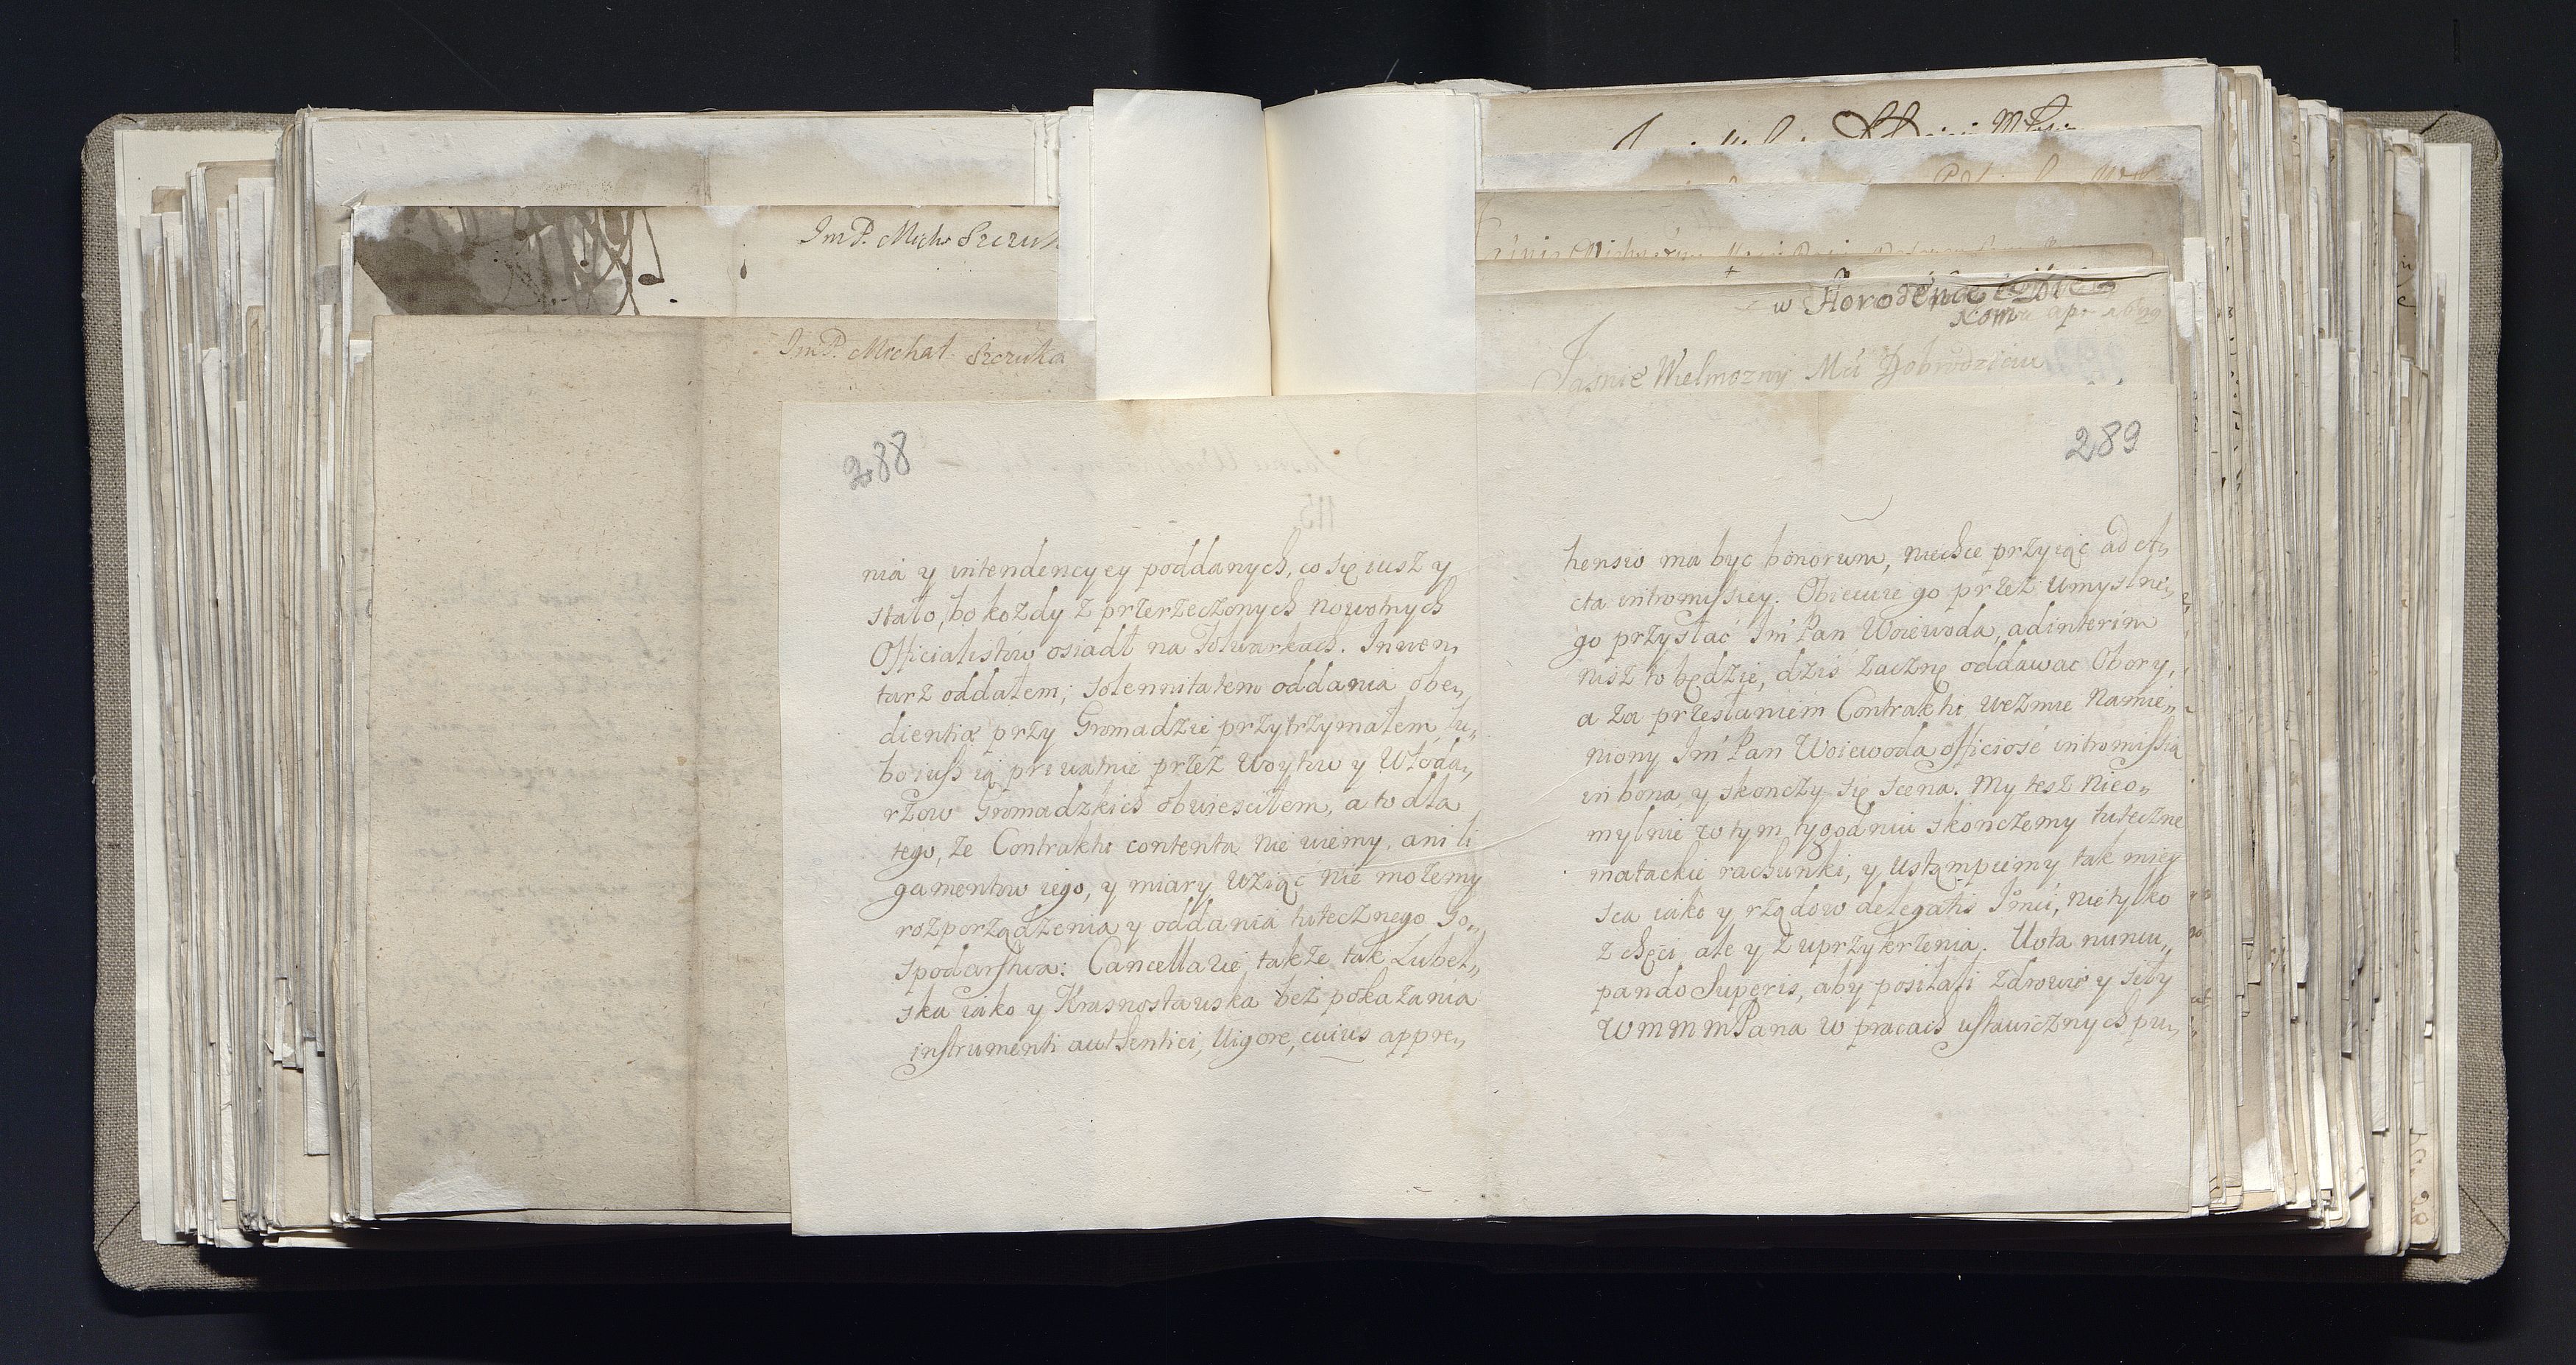 ImP. Mich. Szczuk
ImP. Michał Szczuka
w Horodence
Jasnie Wielmozny Mci Dobrodzieiu
288
nia y intendencyey poddanych, co się iusz y
stało, bo kozdy z przerzeczonych nowotnych
Officialistow osiadł na Folwarkach. Inwen„
tarz oddałem; solennitatem oddania obe„
dientiæ przy Gromadzie przytrzymałem, lu„
bo iuss ią priuatnie przez Woytow y Włoda„
rzow Gromadzkich obwiesciłem, a to dla
tego, ze Contraktu contenta nie wiemy, ani li
gamentow iego, y miary wziąć nie mozemy
rozporządzenia y oddania tutecznego Go„
spodarstwa: Cancellarie takze tak Lubel„
ska iako y Krasnostawska bez pokazania
instrumenti authentici, Uigore, cuius appre„
289
hensio ma byc bonorum, niechce przyiąc ad A„
cta intromissiey. Obiecuie go przez umyslne„
go przysłać Im Pan Woiewoda, ad interim
nisz to będzie, dziś zacznę oddawac Obory,
a za przesłaniem Contraktu wezmie Namie„
niony Im Pan Woiewoda officiosé intromissią
in bona, y skonczy się scena. My tesz nieo„
mylnie w tym tygodniu skonczemy tuteczne
matackie rachunki, y ustąmpiemy tak miey
sca iako y rządow delegatis Imci, nie tylko
z chęci ale y z uprzykrzenia. Uota nuncu„
pando Superis, aby posilali zdrowie y siły
WMMMPana w pracach ustawicznych pu„